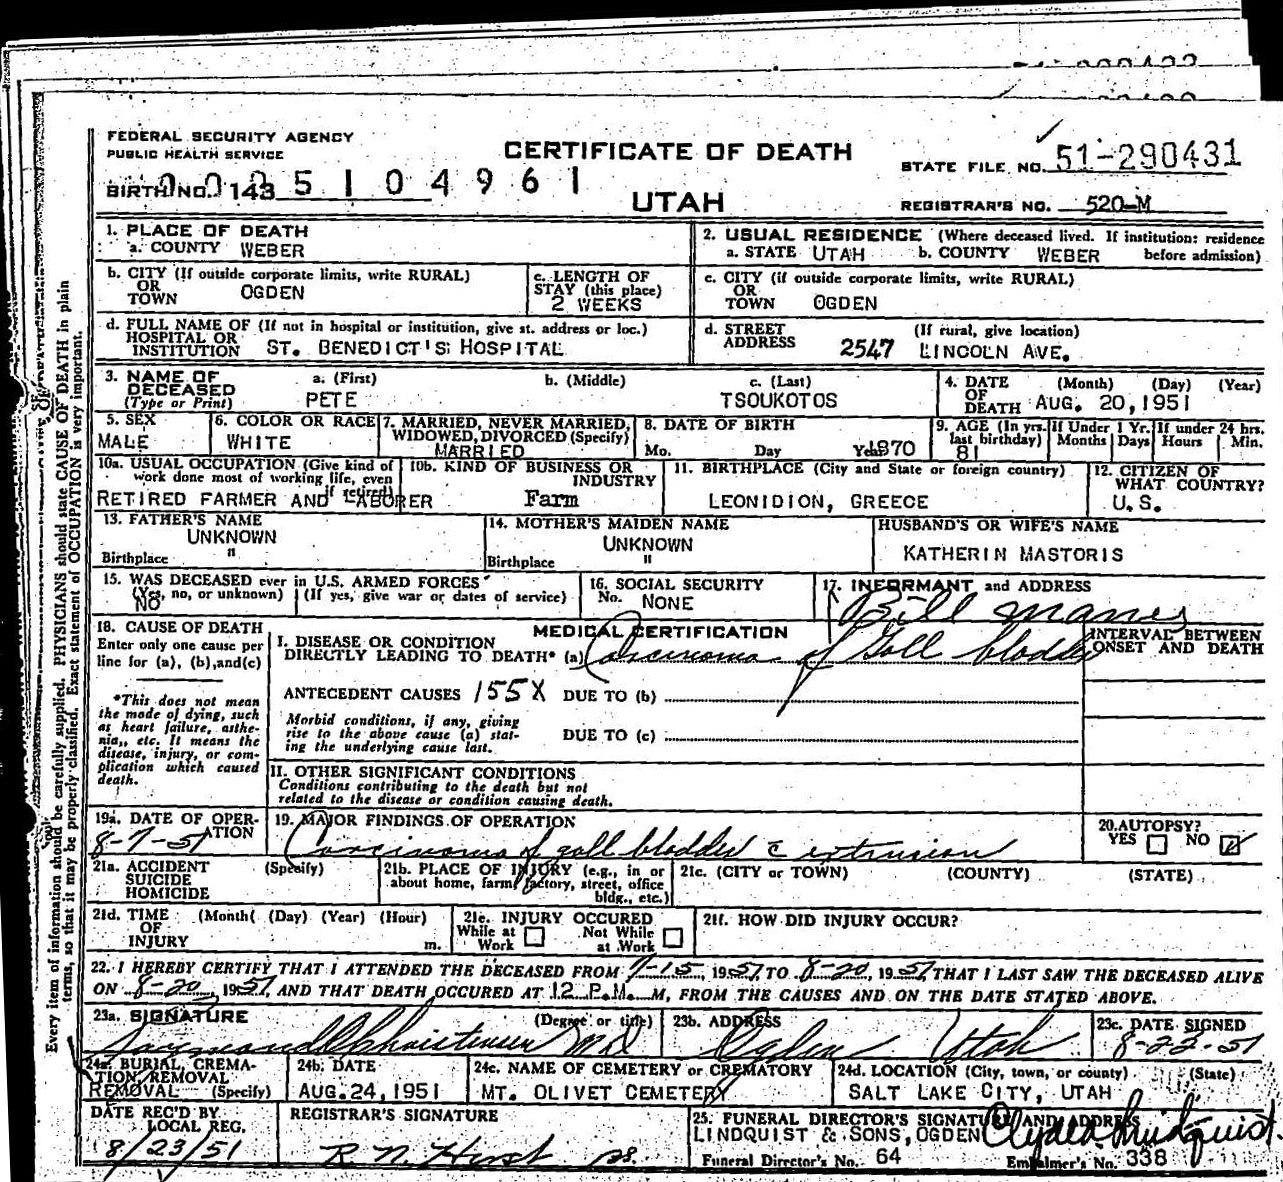 FEDERAL SECURITY AGENCY
PUBLIC HEALTH SERVICE
CERTIFICATE OF DEATH
UTAH
STATE FILE NO. 51-290431
BIRTH NO. 143 5 1 0 4 9 6 1
REGISTRAR'S NO. 520-M
1. PLACE OF DEATH
a. COUNTY WEBER
2. USUAL RESIDENCE (Where deceased lived. If institution: residence before admission)
a. STATE UTAH b. COUNTY WEBER
b. CITY (If outside corporate limits, write RURAL)
OR
TOWN OGDEN
c. LENGTH OF
STAY (this place)
2 WEEKS
c. CITY (if outside corporate limits, write RURAL)
OR
TOWN OGDEN
d. FULL NAME OF (If not in hospital or institution, give st. address or loc.)
HOSPITAL OR
INSTITUTION ST. BENEDICT'S HOSPITAL
d. STREET (If rural, give location)
ADDRESS 2547 LINCOLN AVE.
3. NAME OF
DECEASED
(Type or Print)
a. (First) b. (Middle) c. (Last)
PETE TSOUKOTOS
4. DATE (Month) (Day) (Year)
OF
DEATH AUG. 20, 1951
5. SEX
MALE
6. COLOR OR RACE
WHITE
7. MARRIED, NEVER MARRIED,
WIDOWED, DIVORCED (Specify)
MARRIED
8. DATE OF BIRTH
Mo. Day Year 1870
9. AGE (In yrs. last birthday)
81
If Under 1 Yr. Months Days
If under 24 hrs. Hours Min.
10a. USUAL OCCUPATION (Give kind of
work done most of working life, even
if retired)
RETIRED FARMER AND LABORER
10b. KIND OF BUSINESS OR
INDUSTRY
Farm
11. BIRTHPLACE (City and State or foreign country)
LEONIDION, GREECE
12. CITIZEN OF
WHAT COUNTRY?
U.S.
13. FATHER'S NAME
UNKNOWN
Birthplace "
14. MOTHER'S MAIDEN NAME
UNKNOWN
Birthplace "
HUSBAND'S OR WIFE'S NAME
KATHERIN MASTORIS
15. WAS DECEASED ever in U.S. ARMED FORCES
(Yes, no, or unknown) (If yes, give war or dates of service)
NO
16. SOCIAL SECURITY
No. NONE
17. INFORMANT and ADDRESS
Bill Manes
18. CAUSE OF DEATH
Enter only one cause per
line for (a), (b), and (c)
*This does not mean
the mode of dying, such
as heart failure, asthe-
nia, etc. It means the
disease, injury, or com-
plication which caused
death.
MEDICAL CERTIFICATION
I. DISEASE OR CONDITION
DIRECTLY LEADING TO DEATH* (a) Carcinoma of Gall bladder
INTERVAL BETWEEN
ONSET AND DEATH
ANTECEDENT CAUSES 155X DUE TO (b)
Morbid conditions, if any, giving
rise to the above cause (a) stat-
ing the underlying cause last.
DUE TO (c)
II. OTHER SIGNIFICANT CONDITIONS
Conditions contributing to the death but not
related to the disease or condition causing death.
19a. DATE OF OPER-
ATION
8-7-51
19. MAJOR FINDINGS OF OPERATION
Carcinoma of gall bladder c extrusion
20. AUTOPSY?
YES NO
21a. ACCIDENT (Specify)
SUICIDE
HOMICIDE
21b. PLACE OF INJURY (e.g., in or
about home, farm, factory, street, office
bldg., etc.)
21c. (CITY or TOWN) (COUNTY) (STATE)
21d. TIME (Month) (Day) (Year) (Hour)
OF
INJURY m.
21e. INJURY OCCURED
While at Work Not While at Work
21f. HOW DID INJURY OCCUR?
22. I HEREBY CERTIFY THAT I ATTENDED THE DECEASED FROM 7-15, 1951 TO 8-20, 1951, THAT I LAST SAW THE DECEASED ALIVE
ON 8-20, 1951, AND THAT DEATH OCCURED AT 12 P.M. M, FROM THE CAUSES AND ON THE DATE STATED ABOVE.
23a. SIGNATURE (Degree or title)
Raymond Christensen MD
23b. ADDRESS
Ogden Utah
23c. DATE SIGNED
8-22-51
24a. BURIAL, CREMA-
TION, REMOVAL
REMOVAL (Specify)
24b. DATE
AUG. 24, 1951
24c. NAME OF CEMETERY or CREMATORY
MT. OLIVET CEMETERY
24d. LOCATION (City, town, or county) (State)
SALT LAKE CITY, UTAH
DATE REC'D BY
LOCAL REG.
8/23/51
REGISTRAR'S SIGNATURE
25. FUNERAL DIRECTOR'S SIGNATURE AND ADDRESS
LINDQUIST & SONS, OGDEN
Funeral Director's No. 64
Embalmer's No. 338
Every item of information should be carefully supplied. PHYSICIANS should state CAUSE OF DEATH in plain
terms, so that it may be properly classified. Exact statement of OCCUPATION is very important.